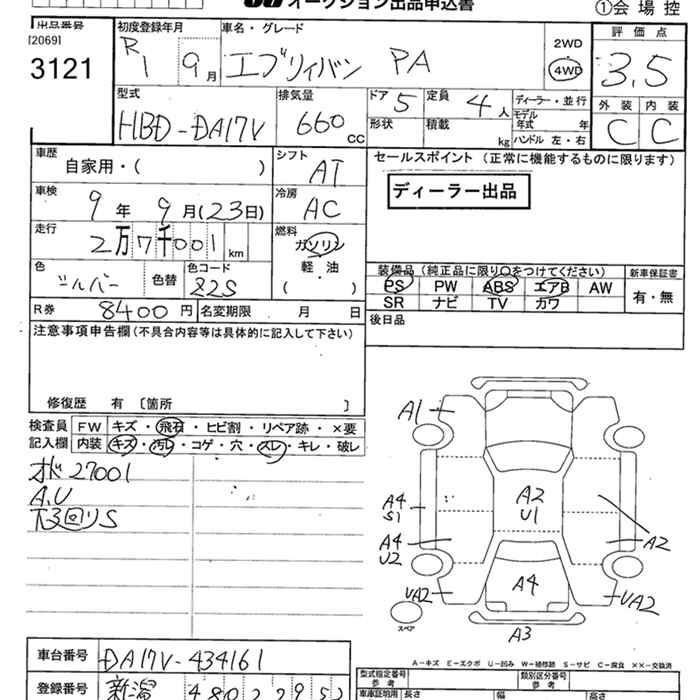 オークション出品申込書
①会場控
出品番号
[2069]
3121
初度登録年月
R1 9月
車名・グレード
エブリィバン PA
2WD
4WD
評価点
3.5
外装 内装
C C
型式
HBD-DA17V
排気量
660 CC
ドア 5
定員 4人
形状
積載 kg
ディーラー・並行
モデル年式 年
ハンドル 左・右
車歴
自家用・( )
シフト
AT
セールスポイント (正常に機能するものに限ります)
ディーラー出品
車検
9年 9月(23日)
冷房
AC
走行
2万7千001 km
燃料
ガソリン
軽・油
( )
色
シルバー
色替
色コード
Z2S
装備品 (純正品に限り○をつけてください)
PS PW ABS エアB AW
SR ナビ TV カワ
新車保証書
有・無
R券 8400円
名変期限 月 日
後日品
注意事項申告欄(不具合内容等は具体的に記入して下さい)
修復歴 有 〔箇所 〕
検査員記入欄
FW キズ・飛石・ヒビ割・リペア跡・×要
内装 キズ・汚れ・コゲ・穴・スレ・キレ・破レ
27001
A,U
下回りS
A1
A4
S1
A2
U1
A4
U2
A2
A4
UA2
UA2
A3
スペア
A-キズ E-エクボ U-凹み W-補修跡 S-サビ C-腐食 XX-交換済
車台番号
DA17V-434161
登録番号
新潟 480
型式指定番号
参考
類別区分番号
参考
車庫証明用
長さ
幅
高さ